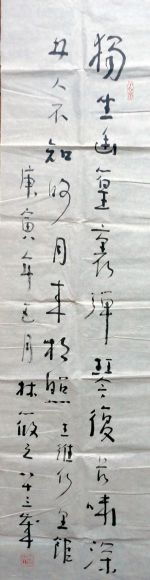 獨坐幽篁裏彈琴復長嘯深
林人不知明月來相照王維竹里館
庚寅年 月林筱之八十三歲